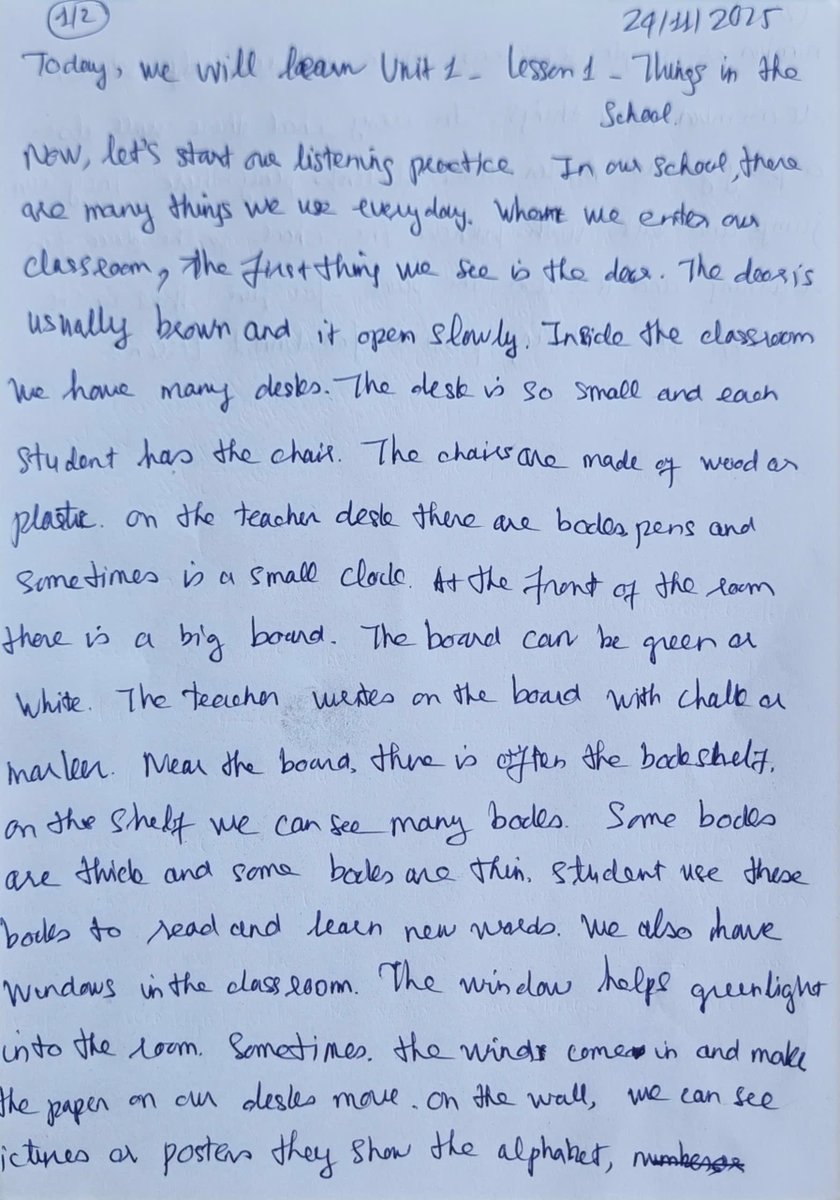 1/2
24/11/2025
Today, we will learn Unit 1 - Lesson 1 - Things in the
School.
Now, let's start our listening practice In our school, there
are many things we use everyday. When we enter our
classroom, the first thing we see is the door. The door is
usually brown and it open slowly. Inside the classroom
we have many desks. The desk is so small and each
student has the chair. The chairs are made of wood or
plastic. on the teacher desk there are books, pens and
sometimes is a small clock. At the front of the room
there is a big board. The board can be green or
white. The teacher writes on the board with chalk or
marker. Near the board, there is often the bookshelf.
on the shelf we can see many books. Some books
are thick and some books are thin. student use these
books to read and learn new words. We also have
windows in the classroom. The window helps greenlight
into the room. Sometimes. the wind come in and make
the paper on our desks move. on the wall, we can see
ictures or posters they show the alphabet,